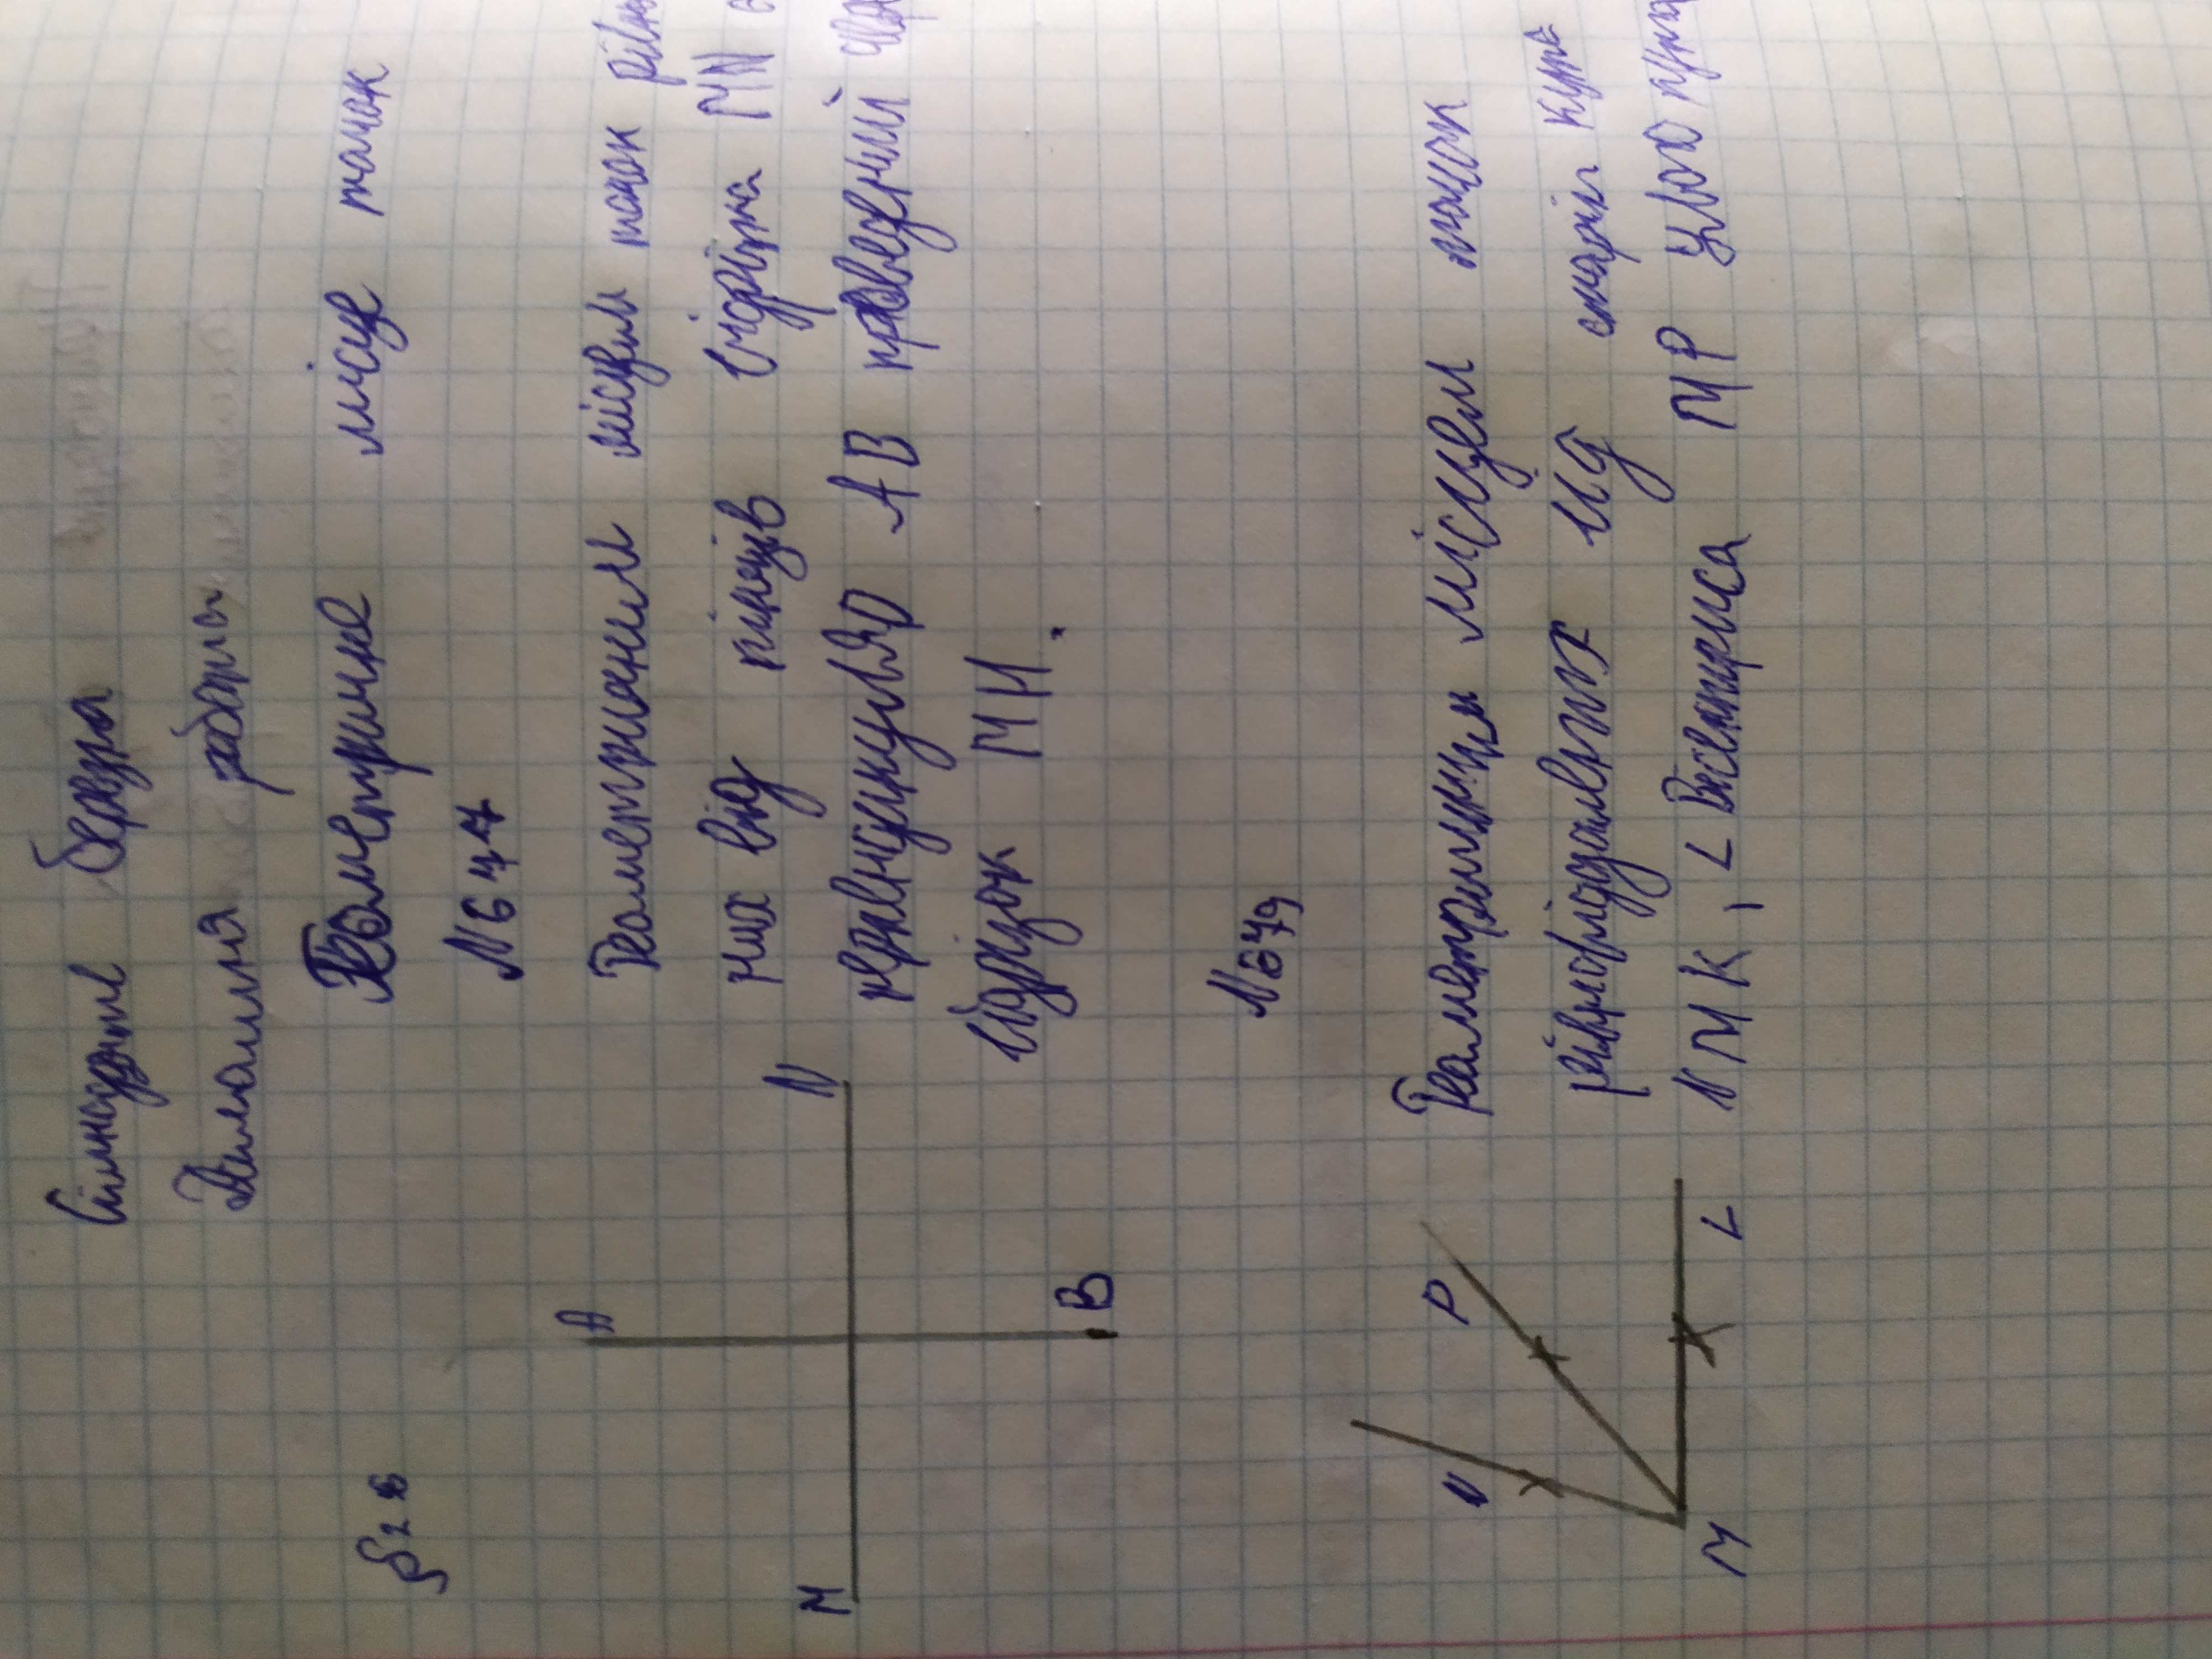 Сімнадцяте березня
Домашня работа
§ 2
Геометричне місце точок
N 647
Геометричним місцем точок рівно
них від кінців відрізка MN є
перпендикуляр AB проведений чер
відрізок MN.
A
M
N
B
N 649
Геометричним місцем точок
рівновіддалених від сторін кута
NMK, L Бісектриса MP цього
N
P
M
L